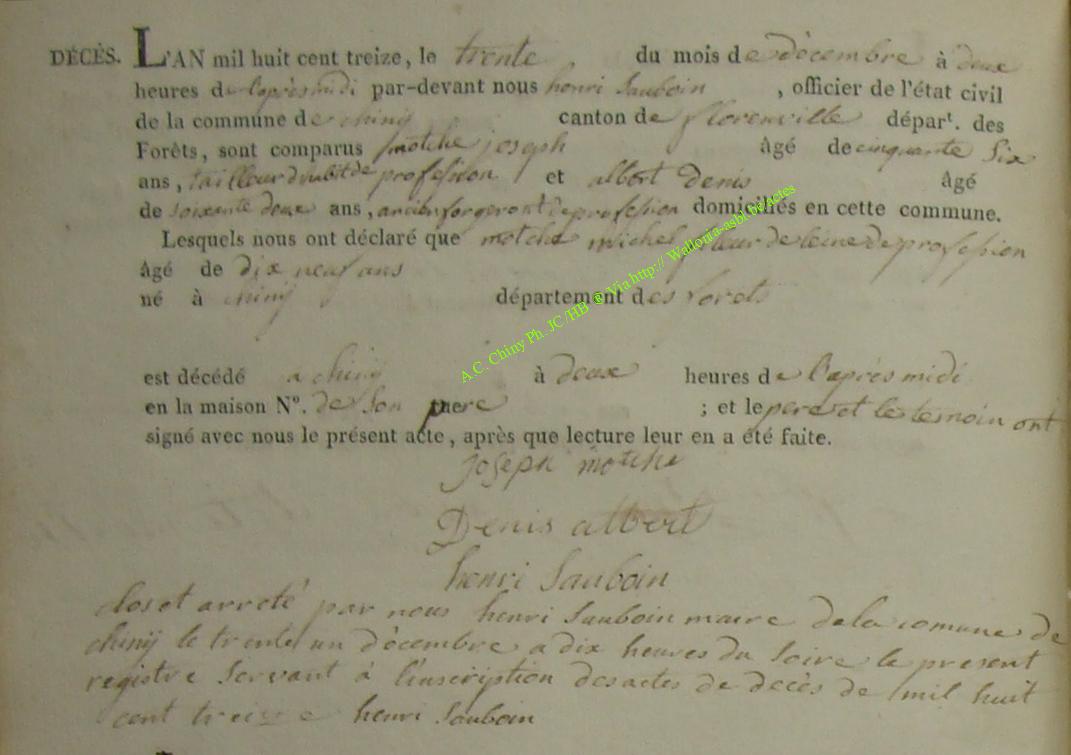 DÉCÈS. L'AN mil huit cent treize, le trente du mois de dècembre à deux
heures de l'aprèsmidi par-devant nous henri Sauboin , officier de l'état civil
de la commune de chinÿ canton de florenville dépar^t. des
Forêts, sont comparus motche joseph âgé de cinquante Six
ans, tailleur d'habit de profession et albert Denis âgé
de soixante deux ans, ancien forgeront de profession domiciliés en cette commune.
Lesquels nous ont déclaré que motche michel fileur de leine de profession
âgé de dix neuf ans
né à chinÿ département des forets
est décédé a chinÿ à deux heures de l'après midi
en la maison N°. de Son pere ; et le pere et le temoin ont
signé avec nous le présent acte, après que lecture leur en a été faite.
Joseph motche
Denis albert
henri Sauboin
clos et arreté par nous henri Sauboin maire de la comune de
chinÿ le trente un dècembre a dix heures du Soire le present
registre Servant à l'inscription des actes de decès de mil huit
cent treize henri Sauboin
A.C. Chiny Ph. JC /HB ® Via http:// Wallonia-asbl.be/actes